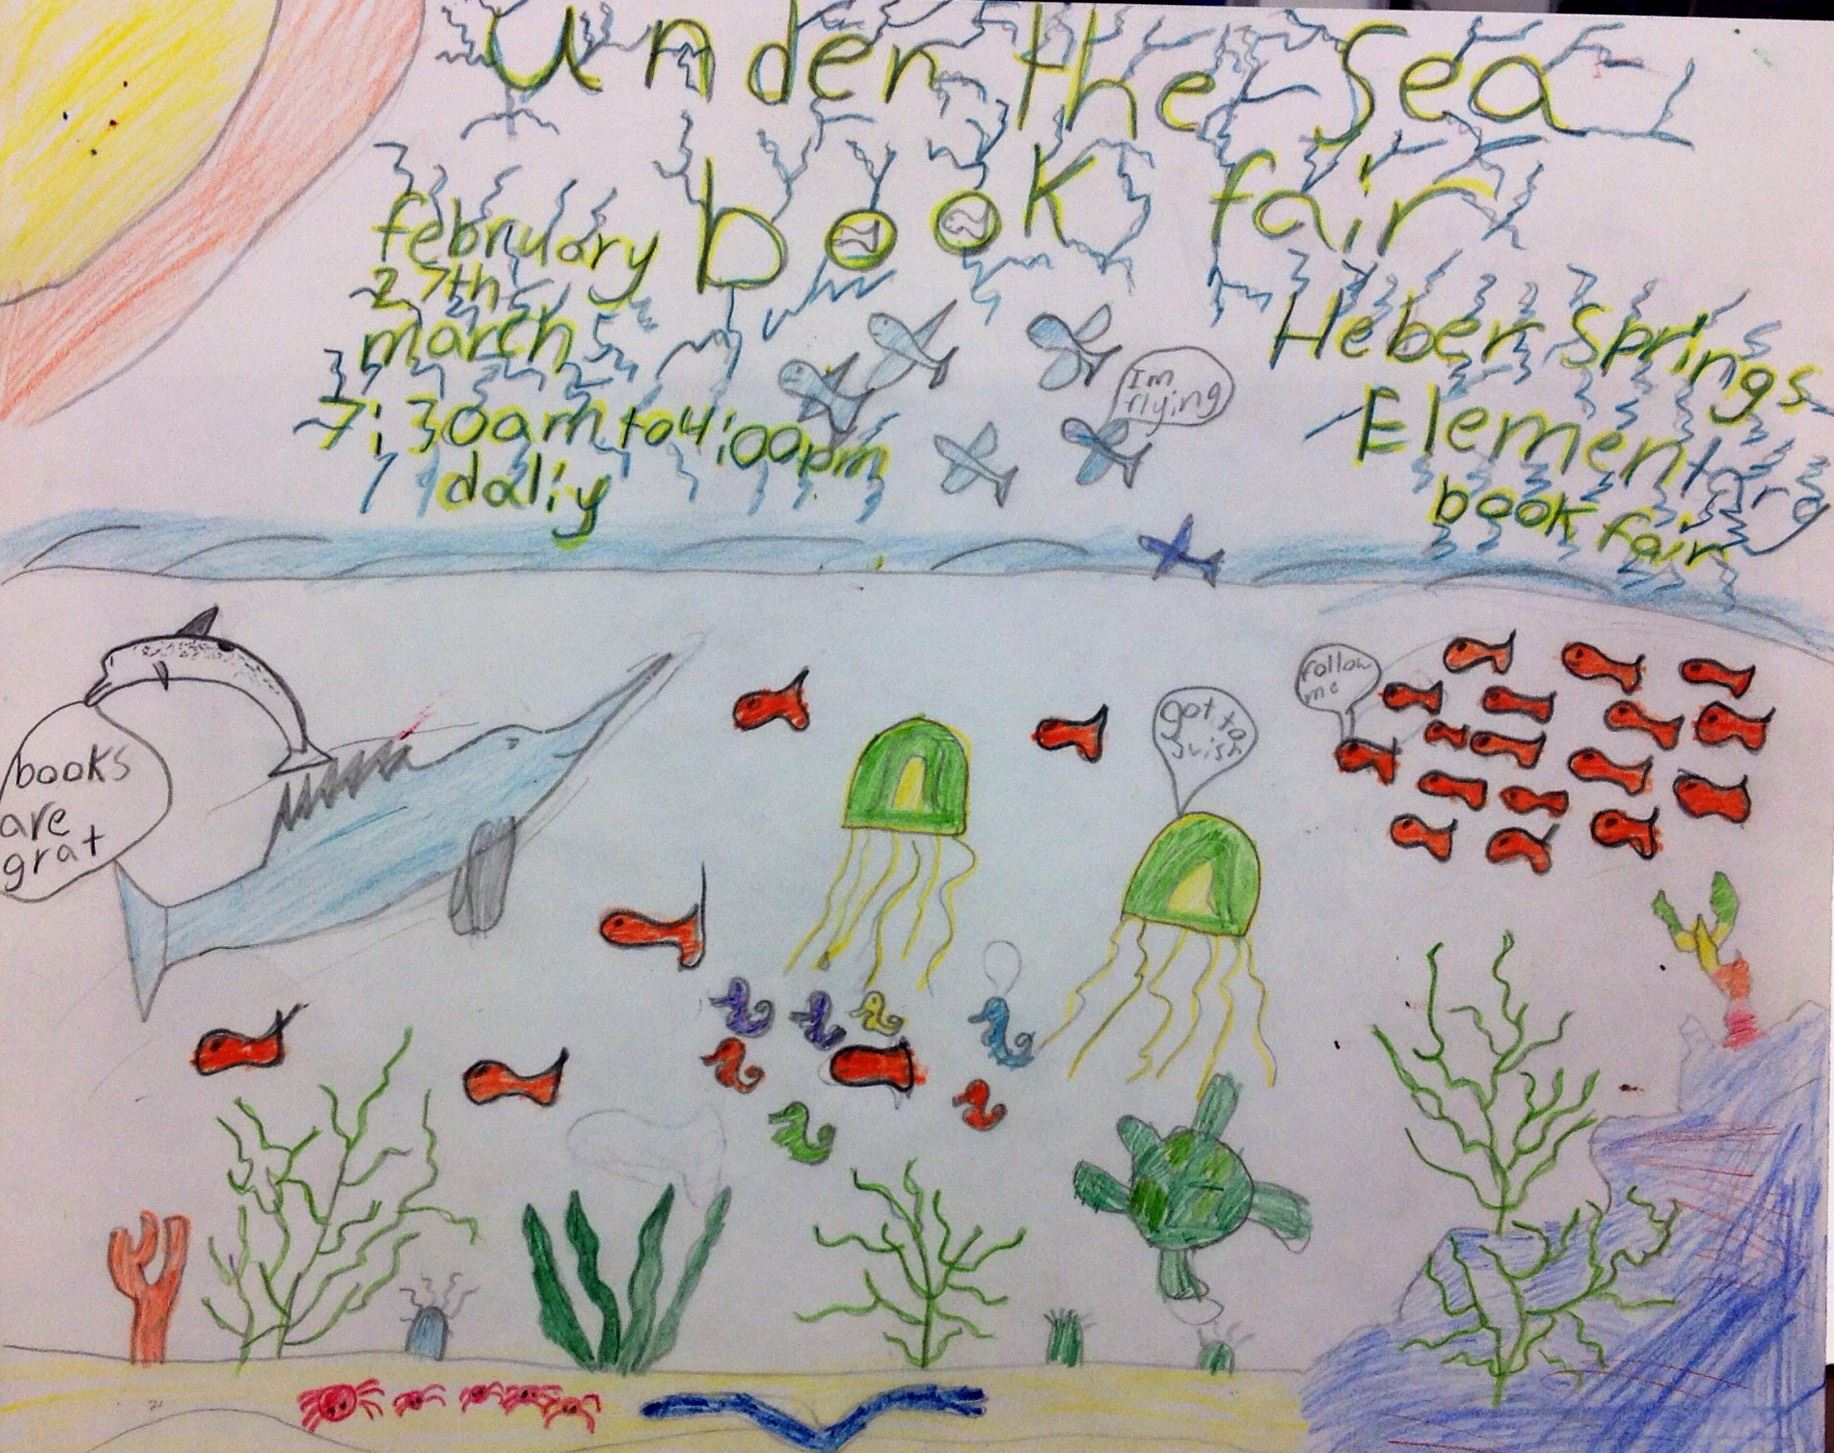 Under the Sea
book fair
february
27th
march 5
7:30am to 4:00pm
daliy
Heber Springs
Elementary
book fair
Im
flying
books
are
grat
got to
swish
follow
me